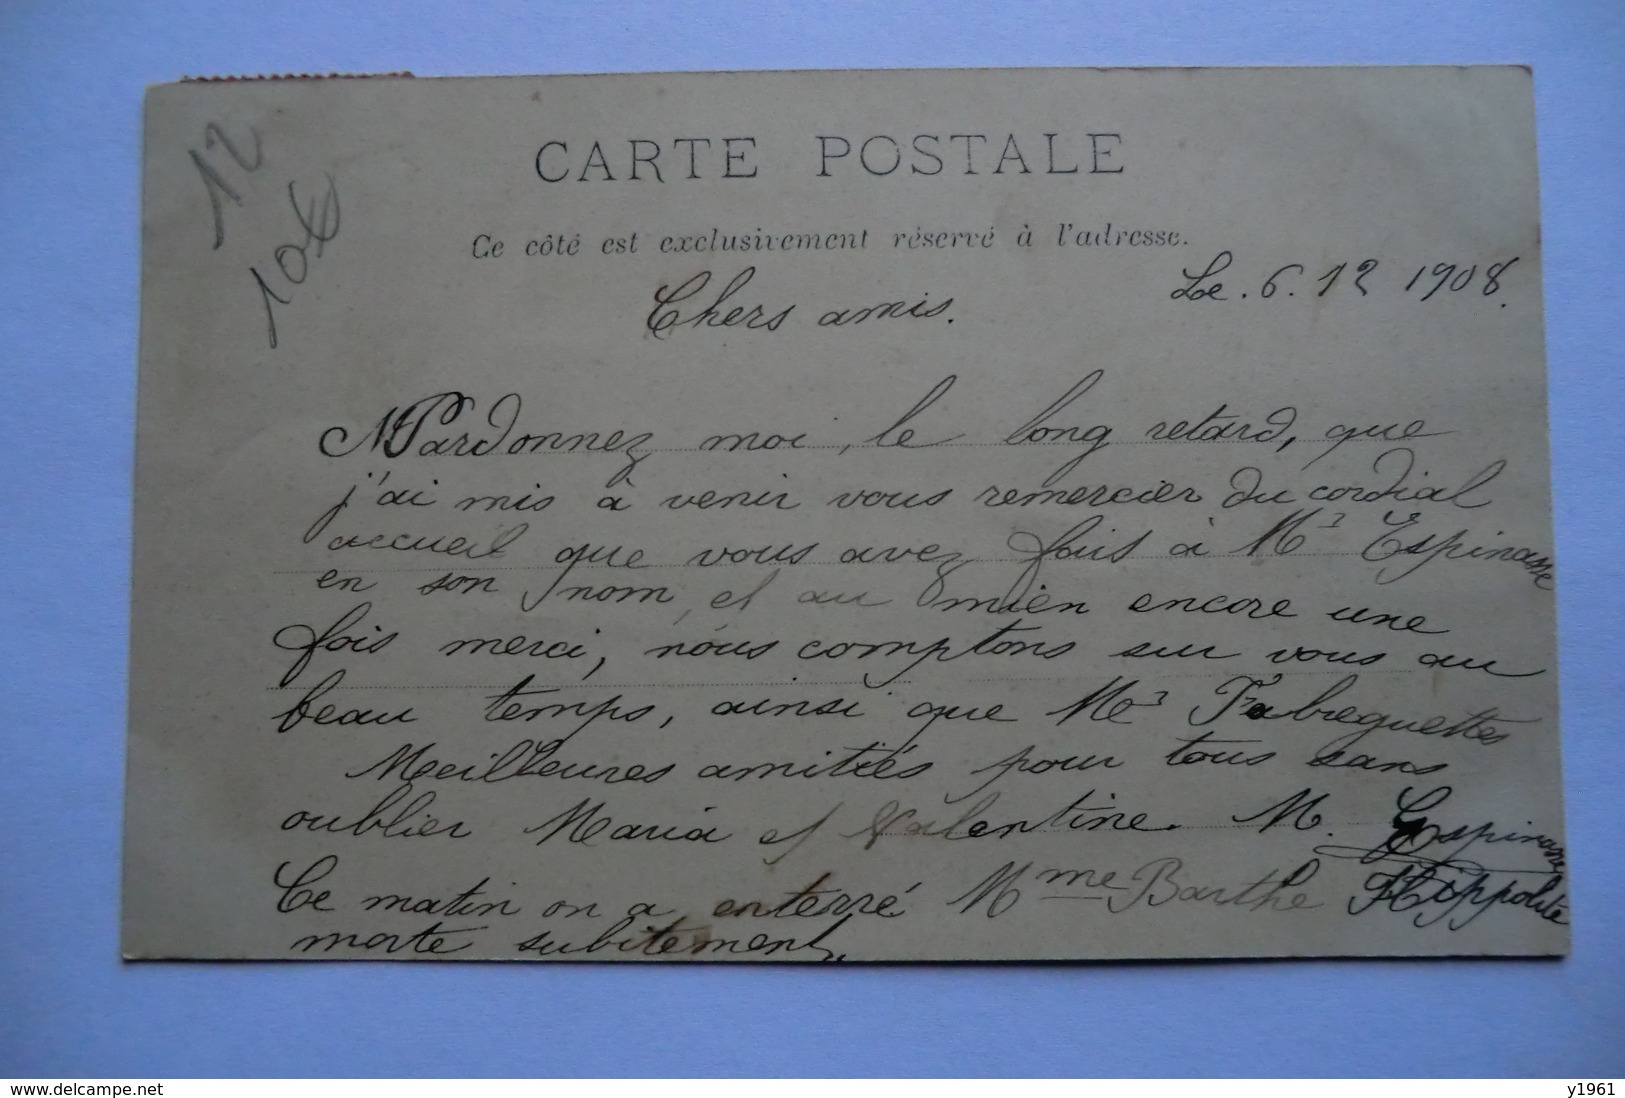 12
10€
CARTE POSTALE
Ce côté est exclusivement réservé à l'adresse.
Le. 6. 12 1908.
Chers amis.
Pardonnez moi, le long retard, que
j'ai mis à venir vous remercier du cordial
accueil que vous avez fais à Mr Espinasse
en son nom et au mien encore une
fois merci, nous comptons sur vous au
beau temps, ainsi que Mr Fabreguettes
Meilleures amitiés pour tous sans
oublier Maria et Valentine. M. Espinasse
Ce matin on a enterré Mme Barthe Hippolite
morte subitement.
www.delcampe.net
y1961